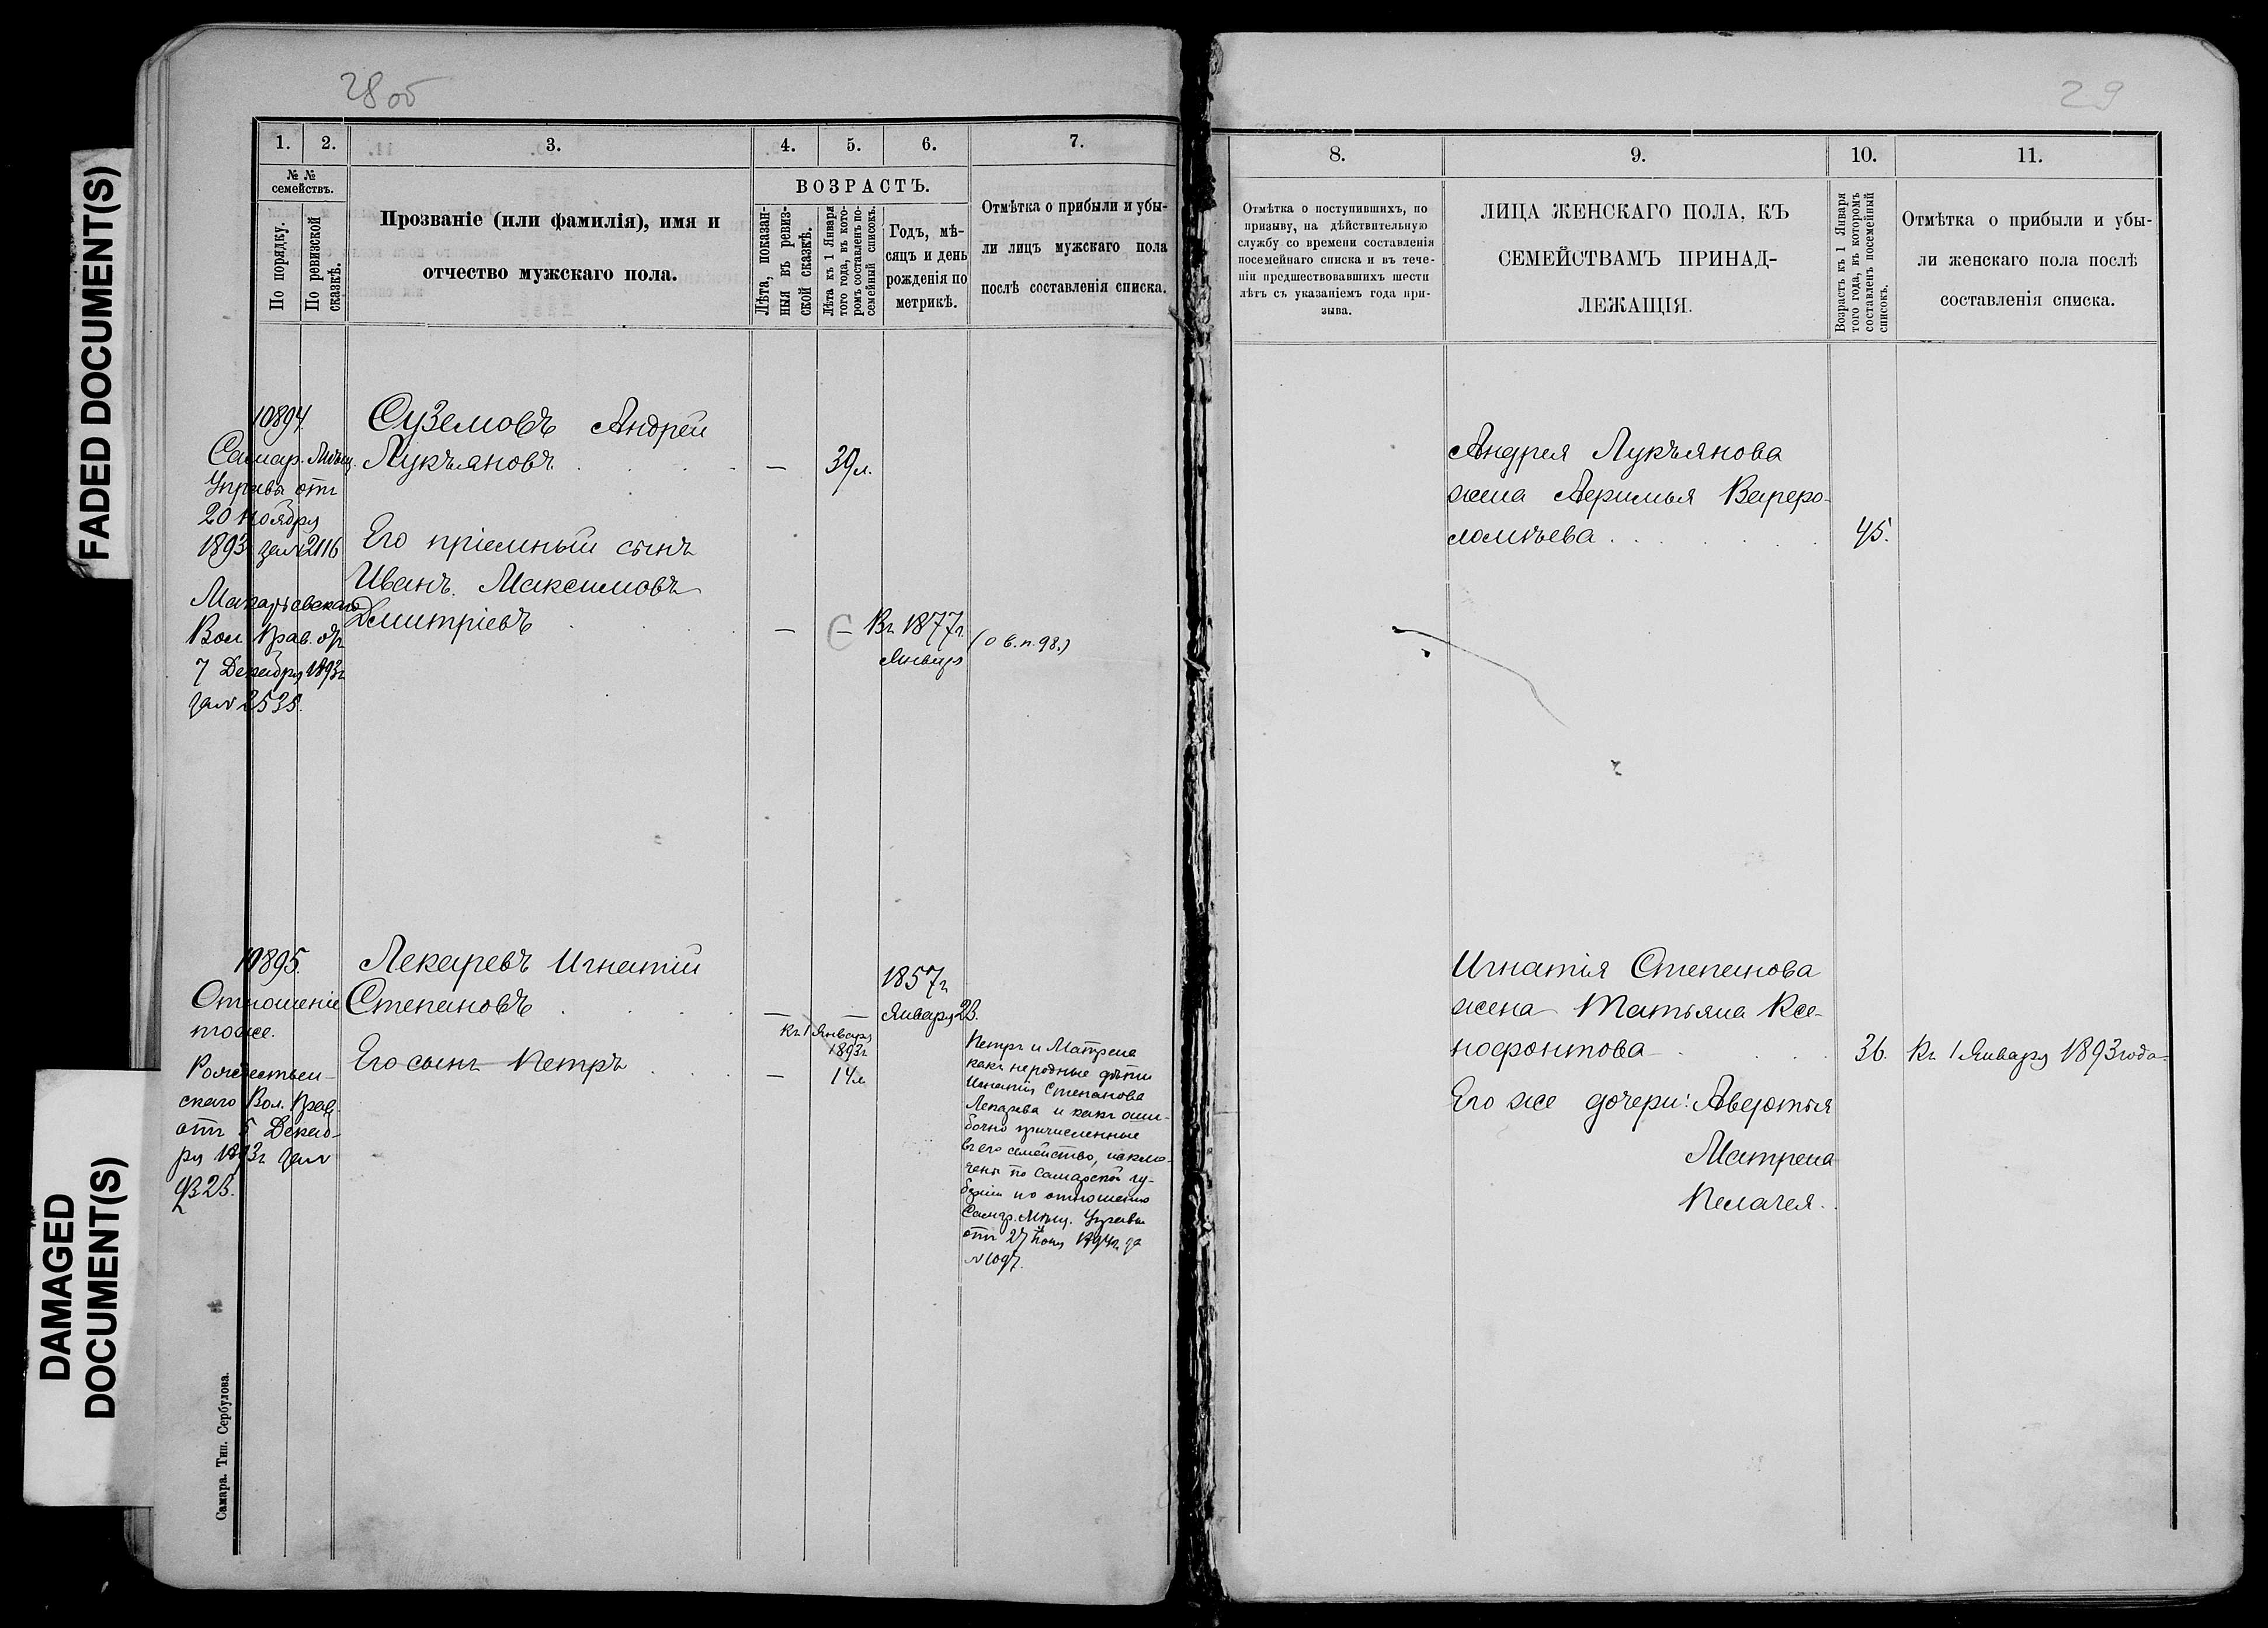 28 об
29
FADED DOCUMENT(S)
DAMAGED
DOCUMENT(S)
1.
2.
3.
4.
5.
6.
7.
№ №
семействъ.
По порядку.
По ревизской
сказкѣ.
Прозваніе (или фамилія), имя и
отчество мужскаго пола.
ВОЗРАСТЪ.
Лѣта, показан-
ныя въ ревиз-
ской сказкѣ.
Лѣта къ 1 Января
того года, въ кото-
ромъ составленъ по-
семейный списокъ.
Годъ, мѣ-
сяцъ и день
рожденія по
метрикѣ.
Отмѣтка о прибыли и убы-
ли лицъ мужскаго пола
послѣ составленія списка.
10894
Самар. Мѣщ.
Управы отъ
20 Ноября
1893 за № 2116
Макарьевскаго
Вол. Прав. отъ
7 Декабря 1893 г.
за № 2538.
Суземовъ Андрей
Лукьяновъ — 39 л.
Его пріемный сынъ
Иванъ Максимовъ
Дмитріевъ — — Въ 1877 г.
Января
(о в. п. 98.)
10895.
Отношеніе
тоже.
Рождествен-
скаго Вол. Прав.
отъ 5 Декаб-
ря 1893 г. за №
Лекаревъ Игнатій
Степановъ — — 1857 г.
Января 23.
къ 1 Января
1893 г.
Его сынъ Петръ — 14 л.
Петръ и Матрена
какъ неродные дѣти
Игнатія Степанова
Лекарева и какъ оши-
бочно причисленные
въ его семейство, исклю-
чены по Самарской гу-
берніи по отношенію
Самар. Мѣщ. Управы
отъ 27 1894 г. за
№ 1097.
Самара. Тип. Сербулова.
8.
9.
10.
11.
Отмѣтка о поступившихъ, по
призыву, на дѣйствительную
службу со времени составленія
посемейнаго списка и въ тече-
ніи предшествовавшихъ шести
лѣтъ съ указаніемъ года при-
зыва.
ЛИЦА ЖЕНСКАГО ПОЛА, КЪ
СЕМЕЙСТВАМЪ ПРИНАД-
ЛЕЖАЩІЯ.
Возрастъ къ 1 Января
того года, въ которомъ
составленъ посемейный
списокъ.
Отмѣтка о прибыли и убы-
ли женскаго пола послѣ
составленія списка.
Андрея Лукьянова
жена Афимья Варфо-
ломѣева 45.
Игнатія Степанова
жена Татьяна Ксе-
нофонтова 36. Къ 1 Января 1893 года
Его же дочери: Авдотья
Матрена
Пелагея.